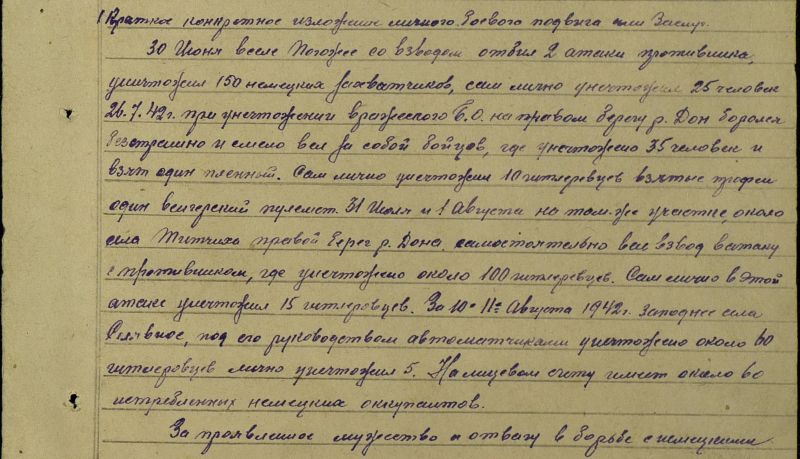 I Краткое конкретное изложение личного боевого подвига или Заслуг.
30 Июня в селе Погожее со взводом отбил 2 атаки противника,
уничтожил 150 немецких захватчиков, сам лично уничтожил 25 человек
26.7.42г. при уничтожении вражеского Б.О. на правом берегу р. Дон боролся
безстрашно и смело вел за собой бойцов, где уничтожено 35 человек и
взят один пленный. Сам лично уничтожил 10 гитлеровцев взятые трофеи
один венгерский пулемет. 31 Июля и 1 Августа на том-же участке, около
села Титчиха правой берег р. Дона, самостоятельно вел взвод в атаку
с противником, где уничтожено около 100 гитлеровцев. Сам лично в этой
атаке уничтожил 15 гитлеровцев. За 10-11е Августа 1942г. западнее села
Селявное, под его руководством автоматчиками уничтожено около 60
гитлеровцев лично уничтожил 5. На лицевом счету имеет около 60
истребленных немецких оккупантов.
За проявленное мужество и отвагу в борьбе с немецкими